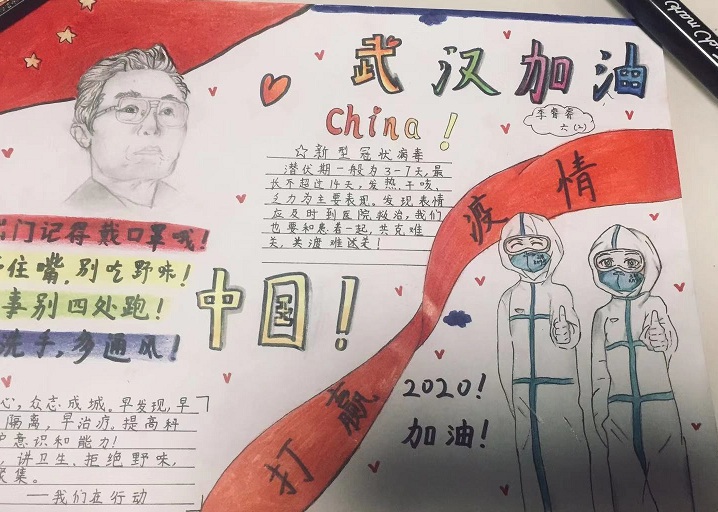 武汉加油
China!
李睿睿
六(2)
☆新型冠状病毒
潜伏期一般为3-7天,最
长不超过14天,发热、干咳、
乏力为主要表现。发现表情
应及时到医院救治,我们
也要和患者一起,共克难
关,共渡难关!
出门记得戴口罩哦!
住嘴,别吃野味!
事别四处跑!
洗手,多通风!
中国!
打赢
疫情
2020!
加油!
心,众志成城。早发现,早
隔离,早治疗。提高科
护意识和能力!
讲卫生、拒绝野味,
聚集。
——我们在行动